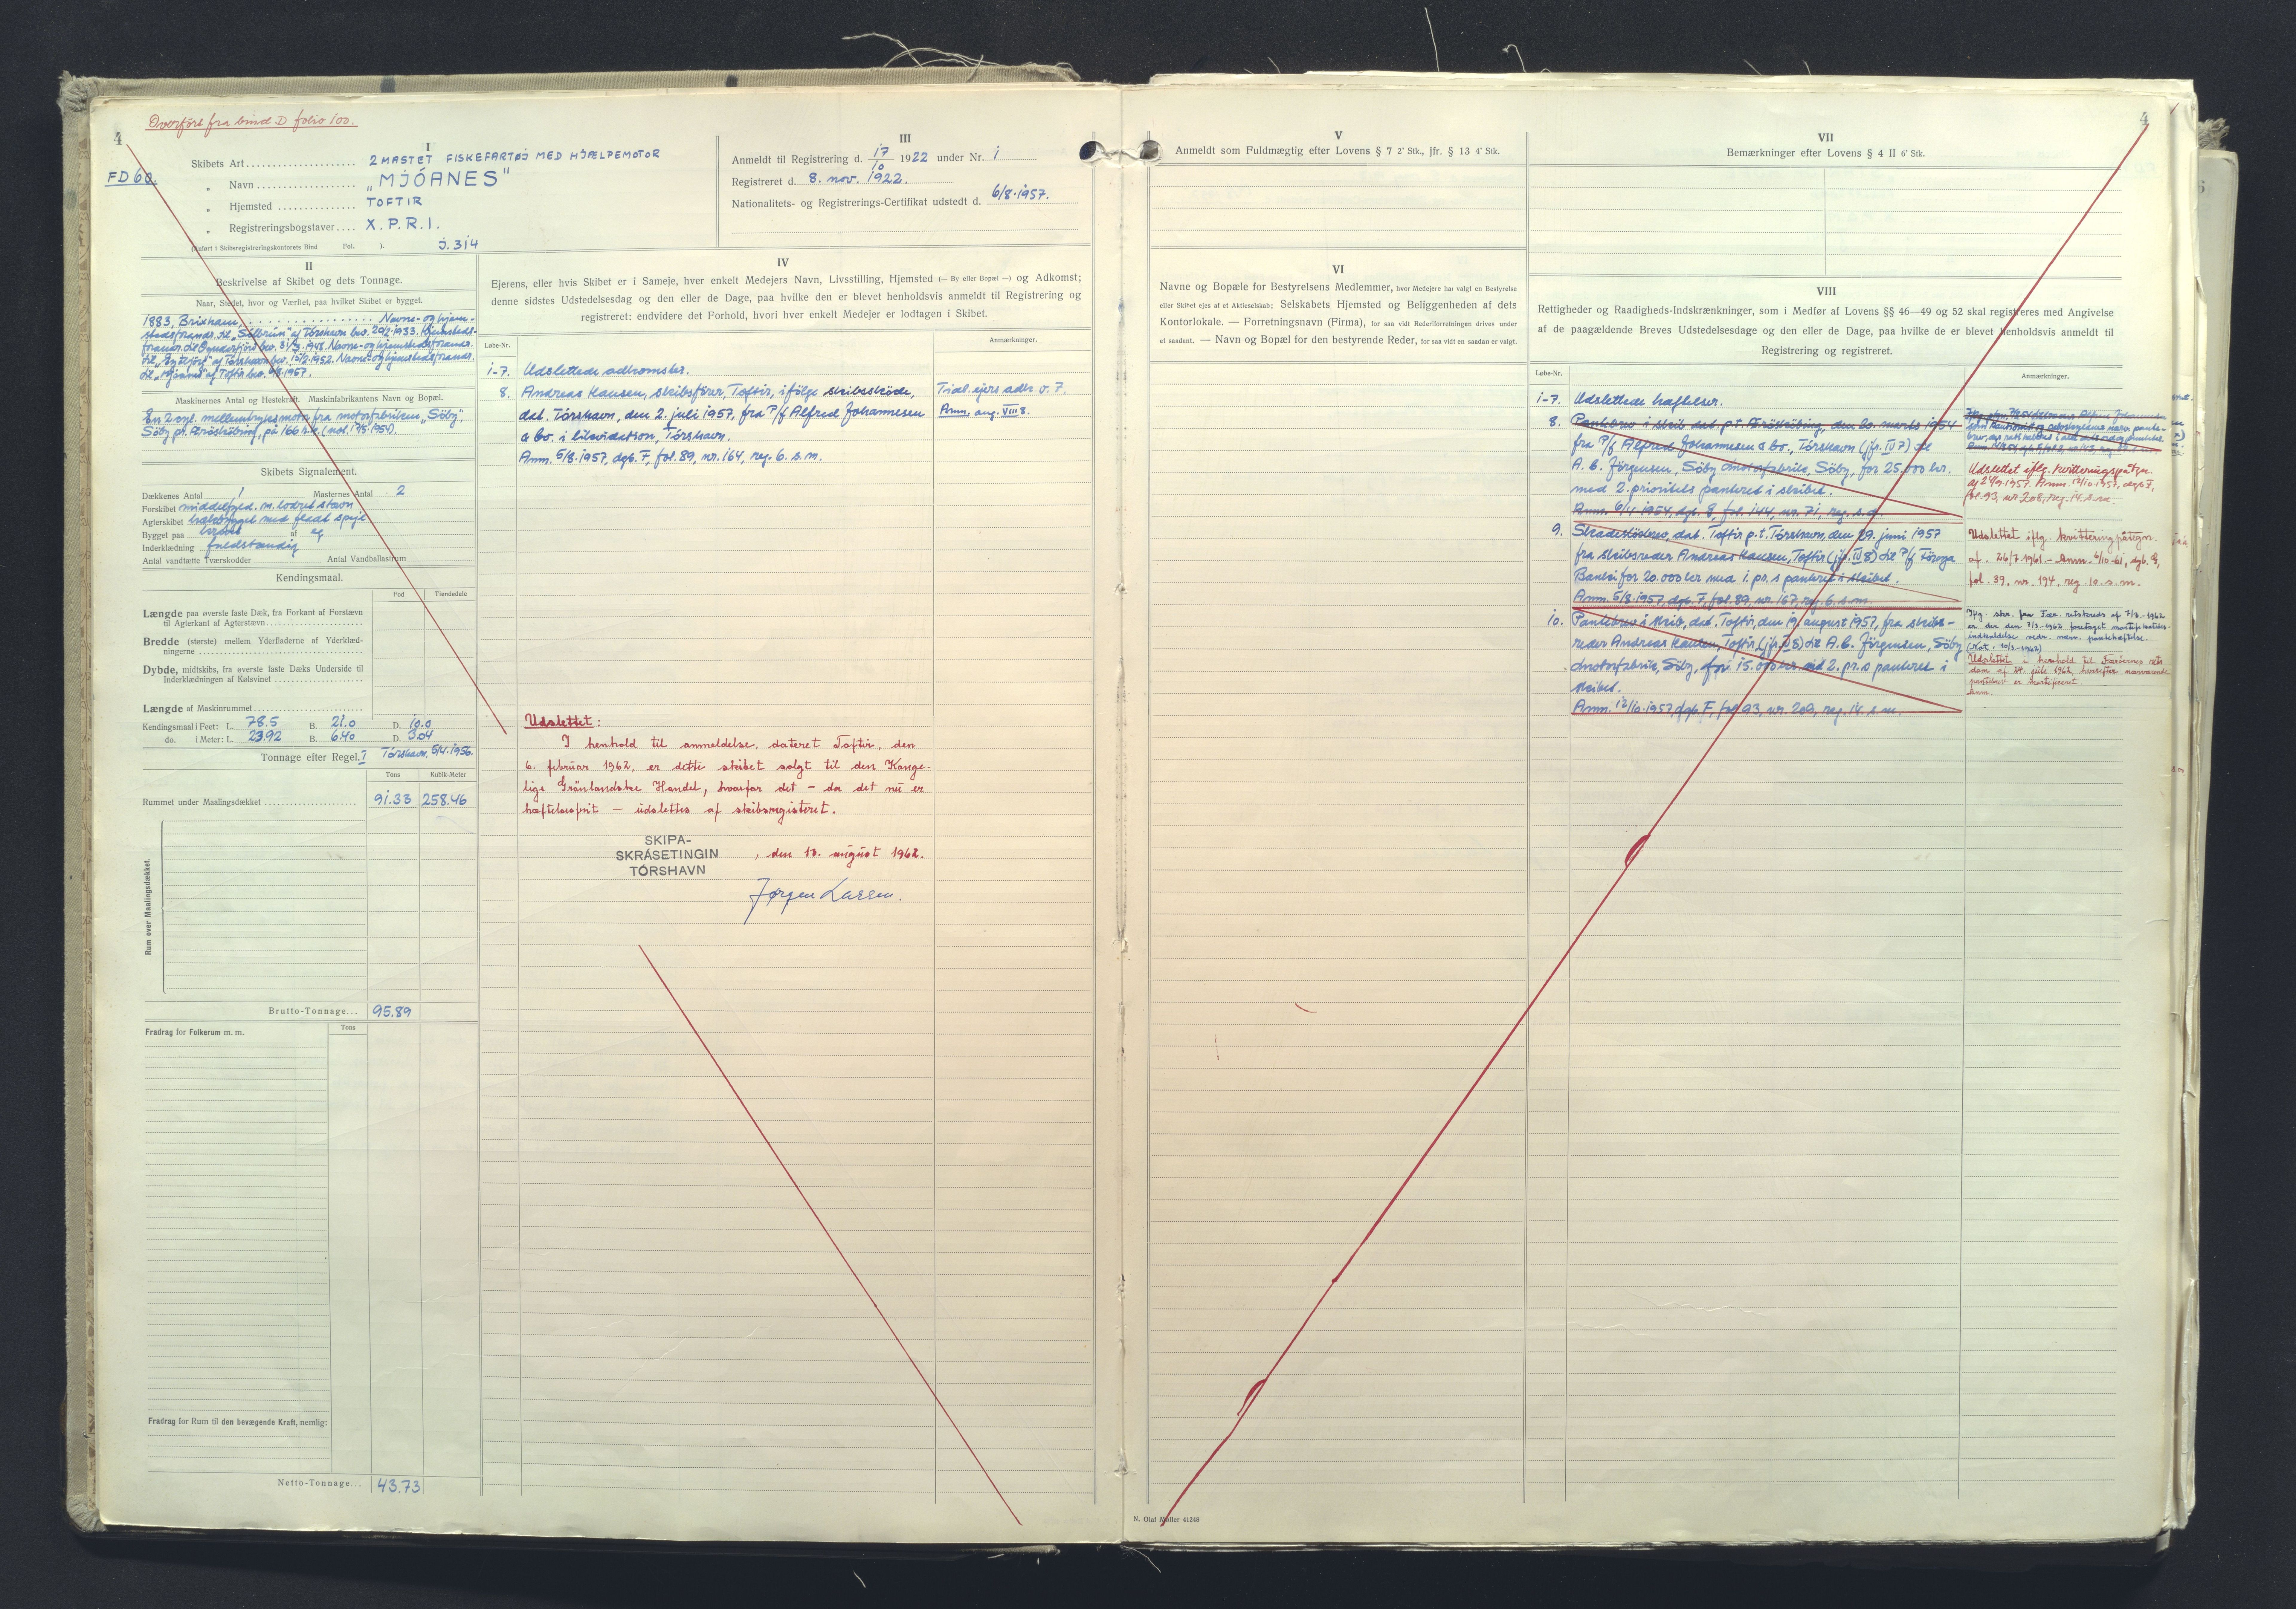 Overført fra bind D folio 100.
4
FD 60.
I
Skibets Art 2 MASTET FISKEFARTØJ MED HJÆLPEMOTOR
" Navn „MJÓANES"
" Hjemsted TOFTIR
" Registreringsbogstaver X.P.R.I.
(Indført i Skibsregistreringskontorets Bind Fol. ). j. 314
III
Anmeldt til Registrering d. 17/10 1922 under Nr. 1
Registreret d. 8. nov. 1922.
Nationalitets- og Registrerings-Certifikat udstedt d. 6/8·1957.
II
Beskrivelse af Skibet og dets Tonnage.
Naar, Stedet, hvor og Værftet, paa hvilket Skibet er bygget.
1883, Brixham, Navne- og hjem-
stedsforandr. til „Sólbrún" af Tórshavn bev. 20/2 1933. Hjemsteds-
forandr. til
til Navne- og hjemstedsforandr.
til „Mjóanes" af Toftir bev. 6/8 1957.
Maskinernes Antal og Hestekraft. Maskinfabrikantens Navn og Bopæl.
En 2 cyl. mellemtryksmotor fra motorfabriken „Söby",
Söby pr. Æröskøbing, på 166 h.k.
Skibets Signalement.
Dækkenes Antal 1 Masternes Antal 2
Forskibet middelfyld. m. lodret stævn
Agterskibet med fladt spejl
Bygget paa kravel af eg
Inderklædning fuldstændig
Antal vandtætte Tværskodder Antal Vandballasttum
Kendingsmaal.
Fod Tiendedele
Længde paa øverste faste Dæk, fra Forkant af Forstævn
til Agterkant af Agterstævn
Bredde (største) mellem Yderfladerne af Yderklæd-
ningerne
Dybde, midtskibs, fra øverste faste Dæks Underside til
Inderklædningen af Kølsvinet
Længde af Maskinrummet
Kendingsmaal i Feet: L. 78.5 B. 21.0 D. 10.0
do. i Meter: L. 23.92 B. 6.40 D. 3.04
Tonnage efter Regel I Tórshavn, 5/4·1956.
Tons Kubik-Meter
Rummet under Maalingsdækket 91.33 258.46
Rum over Maalingsdækket.
Brutto-Tonnage... 95.89
Fradrag for Folkerum m. m. Tons
Fradrag for Rum til den bevægende Kraft, nemlig:
Netto-Tonnage... 43.73
IV
Ejerens, eller hvis Skibet er i Sameje, hver enkelt Medejers Navn, Livsstilling, Hjemsted (— By eller Bopæl —) og Adkomst;
denne sidstes Udstedelsesdag og den eller de Dage, paa hvilke den er blevet henholdsvis anmeldt til Registrering og
registreret; endvidere det Forhold, hvori hver enkelt Medejer er lodtagen i Skibet.
Løbe-Nr. Anmærkninger.
1-7. Udslettede adkomster.
8. Andreas Hansen, skibsfører, Toftir, ifölge skibsskøde,
dat. Tórshavn, den 2. juli 1957, fra P/f Alfred Johannesen
& Co. i likvidation, Tórshavn.
Anm. 5/8·1957, dgb. F, fol. 89, nr. 164, reg. 6. s.m.
Tidl. ejers adk. v. 7.
Anm. ang. VIII 8.
Udslettet:
I henhold til anmeldelse, dateret Toftir, den
6. februar 1962, er dette skibet solgt til den Konge-
lige Grönlandske Handel, hvorfor det — da det nu er
hæftelsesfrit — udslettes af skibsregisteret.
SKIPA-
SKRÁSETINGIN
TÓRSHAVN
, den 13. august 1962.
Jørgen Lassen.
V
Anmeldt som Fuldmægtig efter Lovens § 7 2' Stk., jfr. § 13 4' Stk.
VI
Navne og Bopæle for Bestyrelsens Medlemmer, hvor Medejere har valgt en Bestyrelse
eller Skibet ejes af et Aktieselskab; Selskabets Hjemsted og Beliggenheden af dets
Kontorlokale. — Forretningsnavn (Firma), for saa vidt Rederiforretningen drives under
et saadant. — Navn og Bopæl for den bestyrende Reder, for saa vidt en saadan er valgt.
N. Olaf Møller 41248
VII
4
Bemærkninger efter Lovens § 4 II 6' Stk.
VIII
Rettigheder og Raadigheds-Indskrænkninger, som i Medfør af Lovens §§ 46—49 og 52 skal registreres med Angivelse
af de paagældende Breves Udstedelsesdage og den eller de Dage, paa hvilke de er blevet henholdsvis anmeldt til
Registrering og registreret.
Løbe-Nr. Anmærkninger.
1-7. Udslettede hæftelser.
8. Pantebrev i skib dat. p.t. Æröskøbing, den 20. marts 1954
fra P/f Alfred Johannesen & Co., Tórshavn (jfr. IV 7) til
A. C. Jörgensen, Söby motorfabrik, Söby, for 25,000 kr.
med 2. prioritets panteret i skibet.
Anm. 6/4 1954, dgb. E, fol. 144, nr. 71, reg. s.d.
Udslettet iflg. kvitteringspåtegn.
af 24/9 1957. Anm. 12/10·1957, dgb. F,
fol. 93, nr. 208, reg. 14. s.m.
9. Skadesløsbrev, dat. Toftir p.t. Tórshavn, den 29. juni 1957
fra skibsreder Andreas Hansen, Toftir (jfr. IV 8) til P/f Föroya
Banki for 20.000 kr med 1. pr.s panteret i skibet.
Anm. 5/8·1957, dgb. F, fol. 89, nr. 167, reg. 6. s.m.
Udslettet iflg. kvitteringpåtegn.
af. 26/7 1961. - Anm. 6/10-61, dgb. G,
fol. 39, nr. 194, reg. 10. s.m.
10. Pantebrev i skib, dat. Toftir, den 19. august 1957, fra skibs-
reder Andreas Hansen, Toftir, (jfr. IV 8) til A. C. Jörgensen, Söby
motorfabrik, Söby, for 15.000 kr. med 2. pr.s panteret i
skibet.
Anm. 12/10·1957, dgb. F, fol. 93, nr. 209, reg. 14. s.m.
Udslettet i henhold til Færøernes rets
dom af 24. juli 1962, hvorefter nærværende
pantebrev er mortificeret.
Anm.